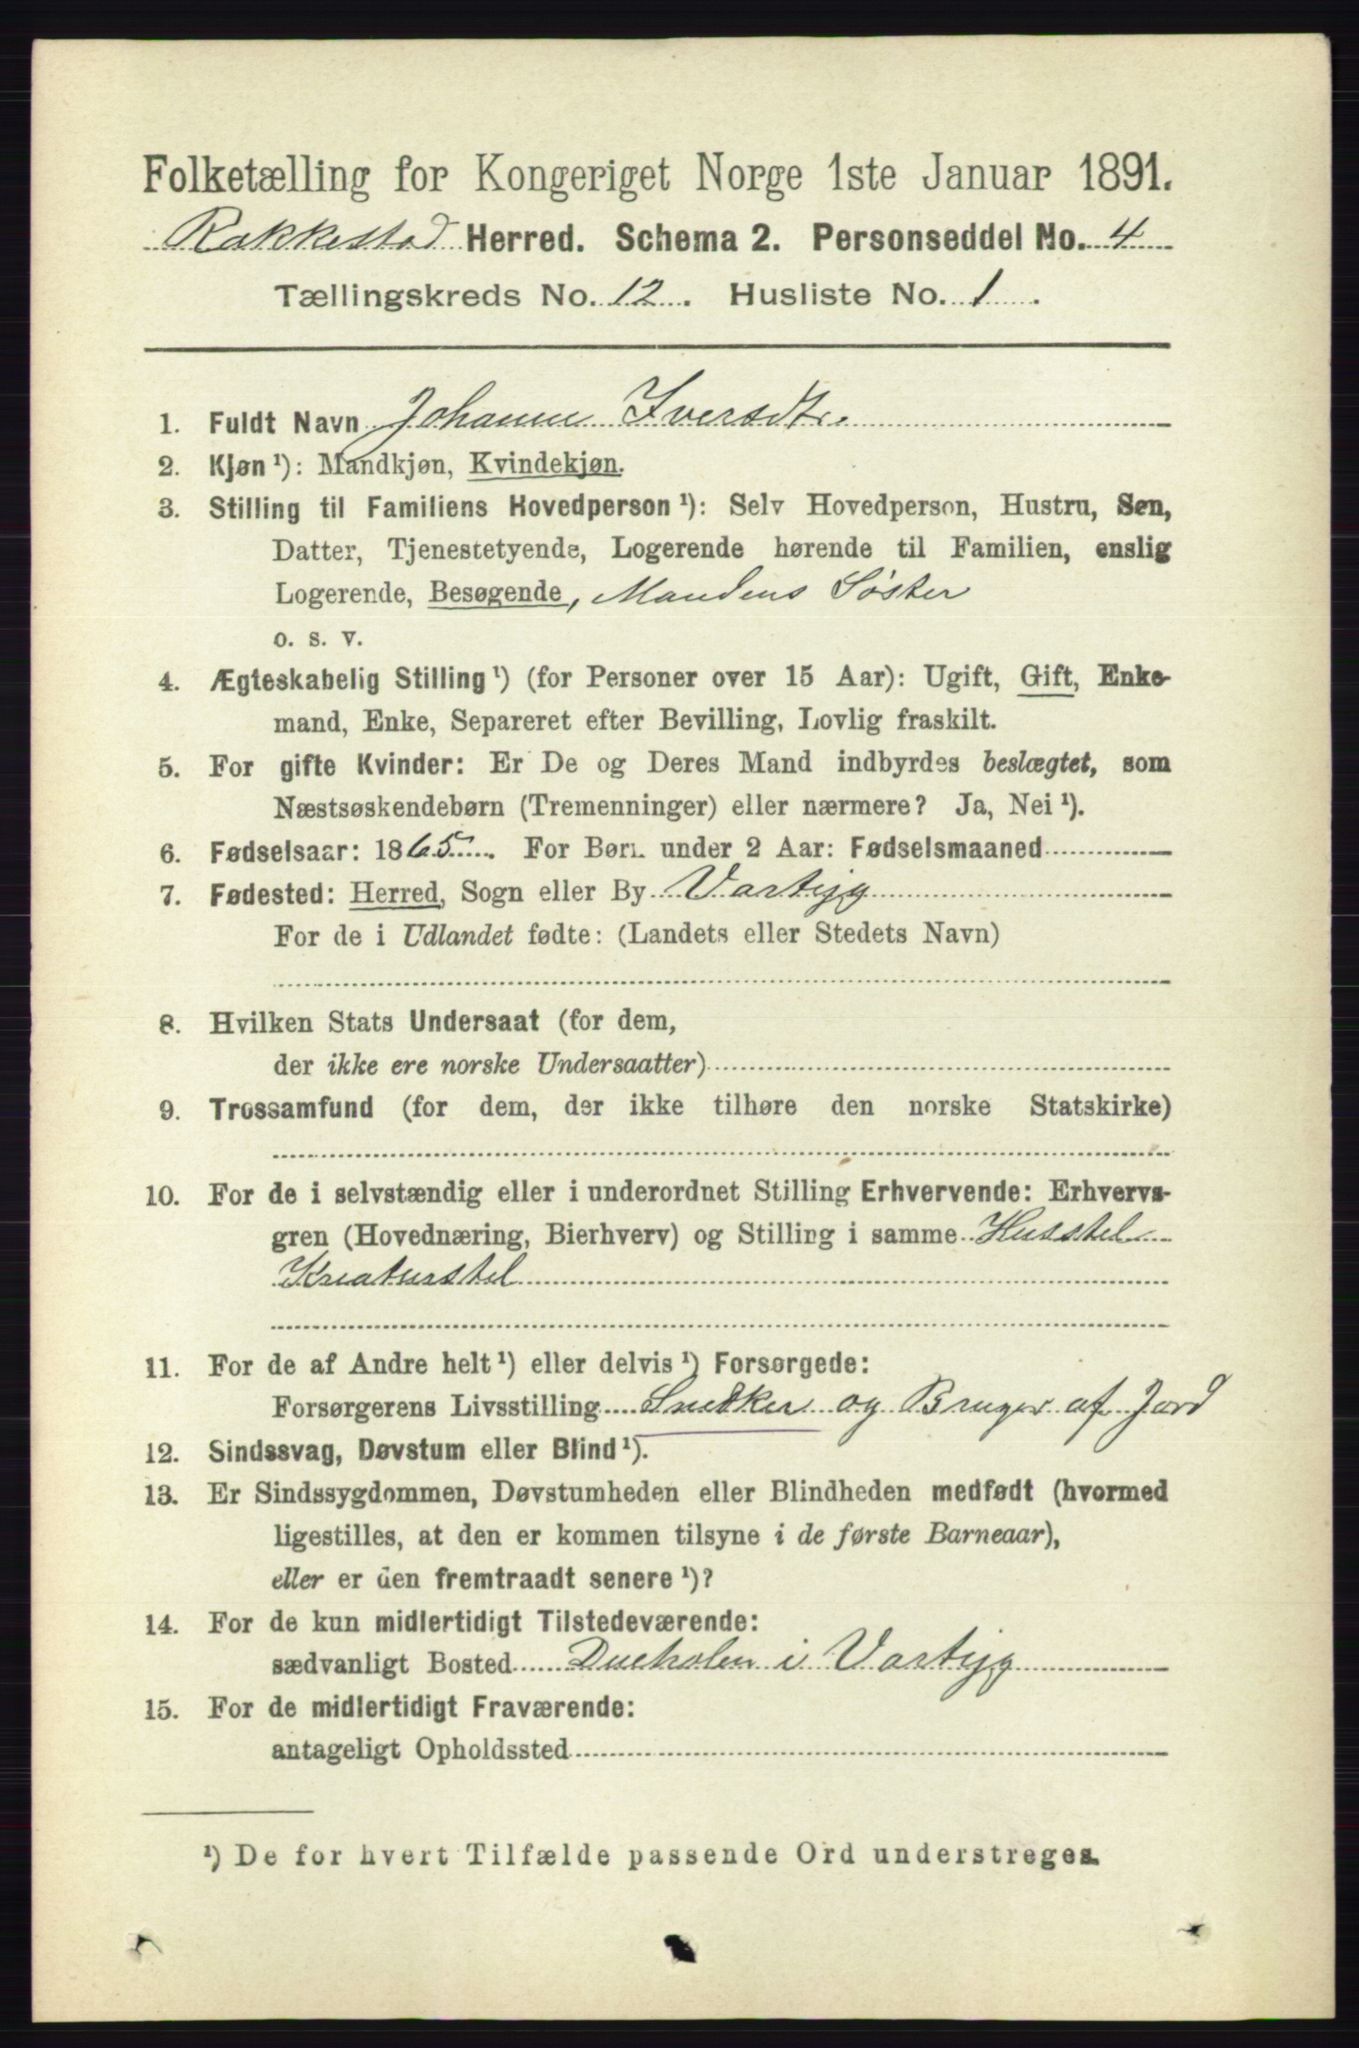 Folketælling for Kongeriget Norge 1ste Januar 1891.
Rakkestad Herred. Schema 2. Personseddel No. 4
Tællingskreds No. 12. Husliste No. 1.
1. Fuldt Navn Johanne Iversdtr.
2. Kjøn ¹): Mandkjøn, Kvindekjøn.
3. Stilling til Familiens Hovedperson ¹): Selv Hovedperson, Hustru, Søn,
Datter, Tjenestetyende, Logerende hørende til Familien, enslig
Logerende, Besøgende, Mandens Søster
o. s. v.
4. Ægteskabelig Stilling ¹) (for Personer over 15 Aar): Ugift, Gift, Enke-
mand, Enke, Separeret efter Bevilling, Lovlig fraskilt.
5. For gifte Kvinder: Er De og Deres Mand indbyrdes beslægtet, som
Næstsøskendebørn (Tremenninger) eller nærmere? Ja, Nei ¹).
6. Fødselsaar: 1865. For Børn under 2 Aar: Fødselsmaaned
7. Fødested: Herred, Sogn eller By Varteig
For de i Udlandet fødte: (Landets eller Stedets Navn)
8. Hvilken Stats Undersaat (for dem,
der ikke ere norske Undersaatter)
9. Trossamfund (for dem, der ikke tilhøre den norske Statskirke)
10. For de i selvstændig eller i underordnet Stilling Erhvervende: Erhvervs-
gren (Hovednæring, Bierhverv) og Stilling i samme Husstel
Kreaturstel
11. For de af Andre helt ¹) eller delvis ¹) Forsørgede:
Forsørgerens Livsstilling Snedker og Bruger af Jord
12. Sindssvag, Døvstum eller Blind ¹).
13. Er Sindssygdommen, Døvstumheden eller Blindheden medfødt (hvormed
ligestilles, at den er kommen tilsyne i de første Barneaar),
eller er den fremtraadt senere ¹)?
14. For de kun midlertidigt Tilstedeværende:
sædvanligt Bosted Dueholen i Varteig
15. For de midlertidigt Fraværende:
antageligt Opholdssted
¹) De for hvert Tilfælde passende Ord understreges.